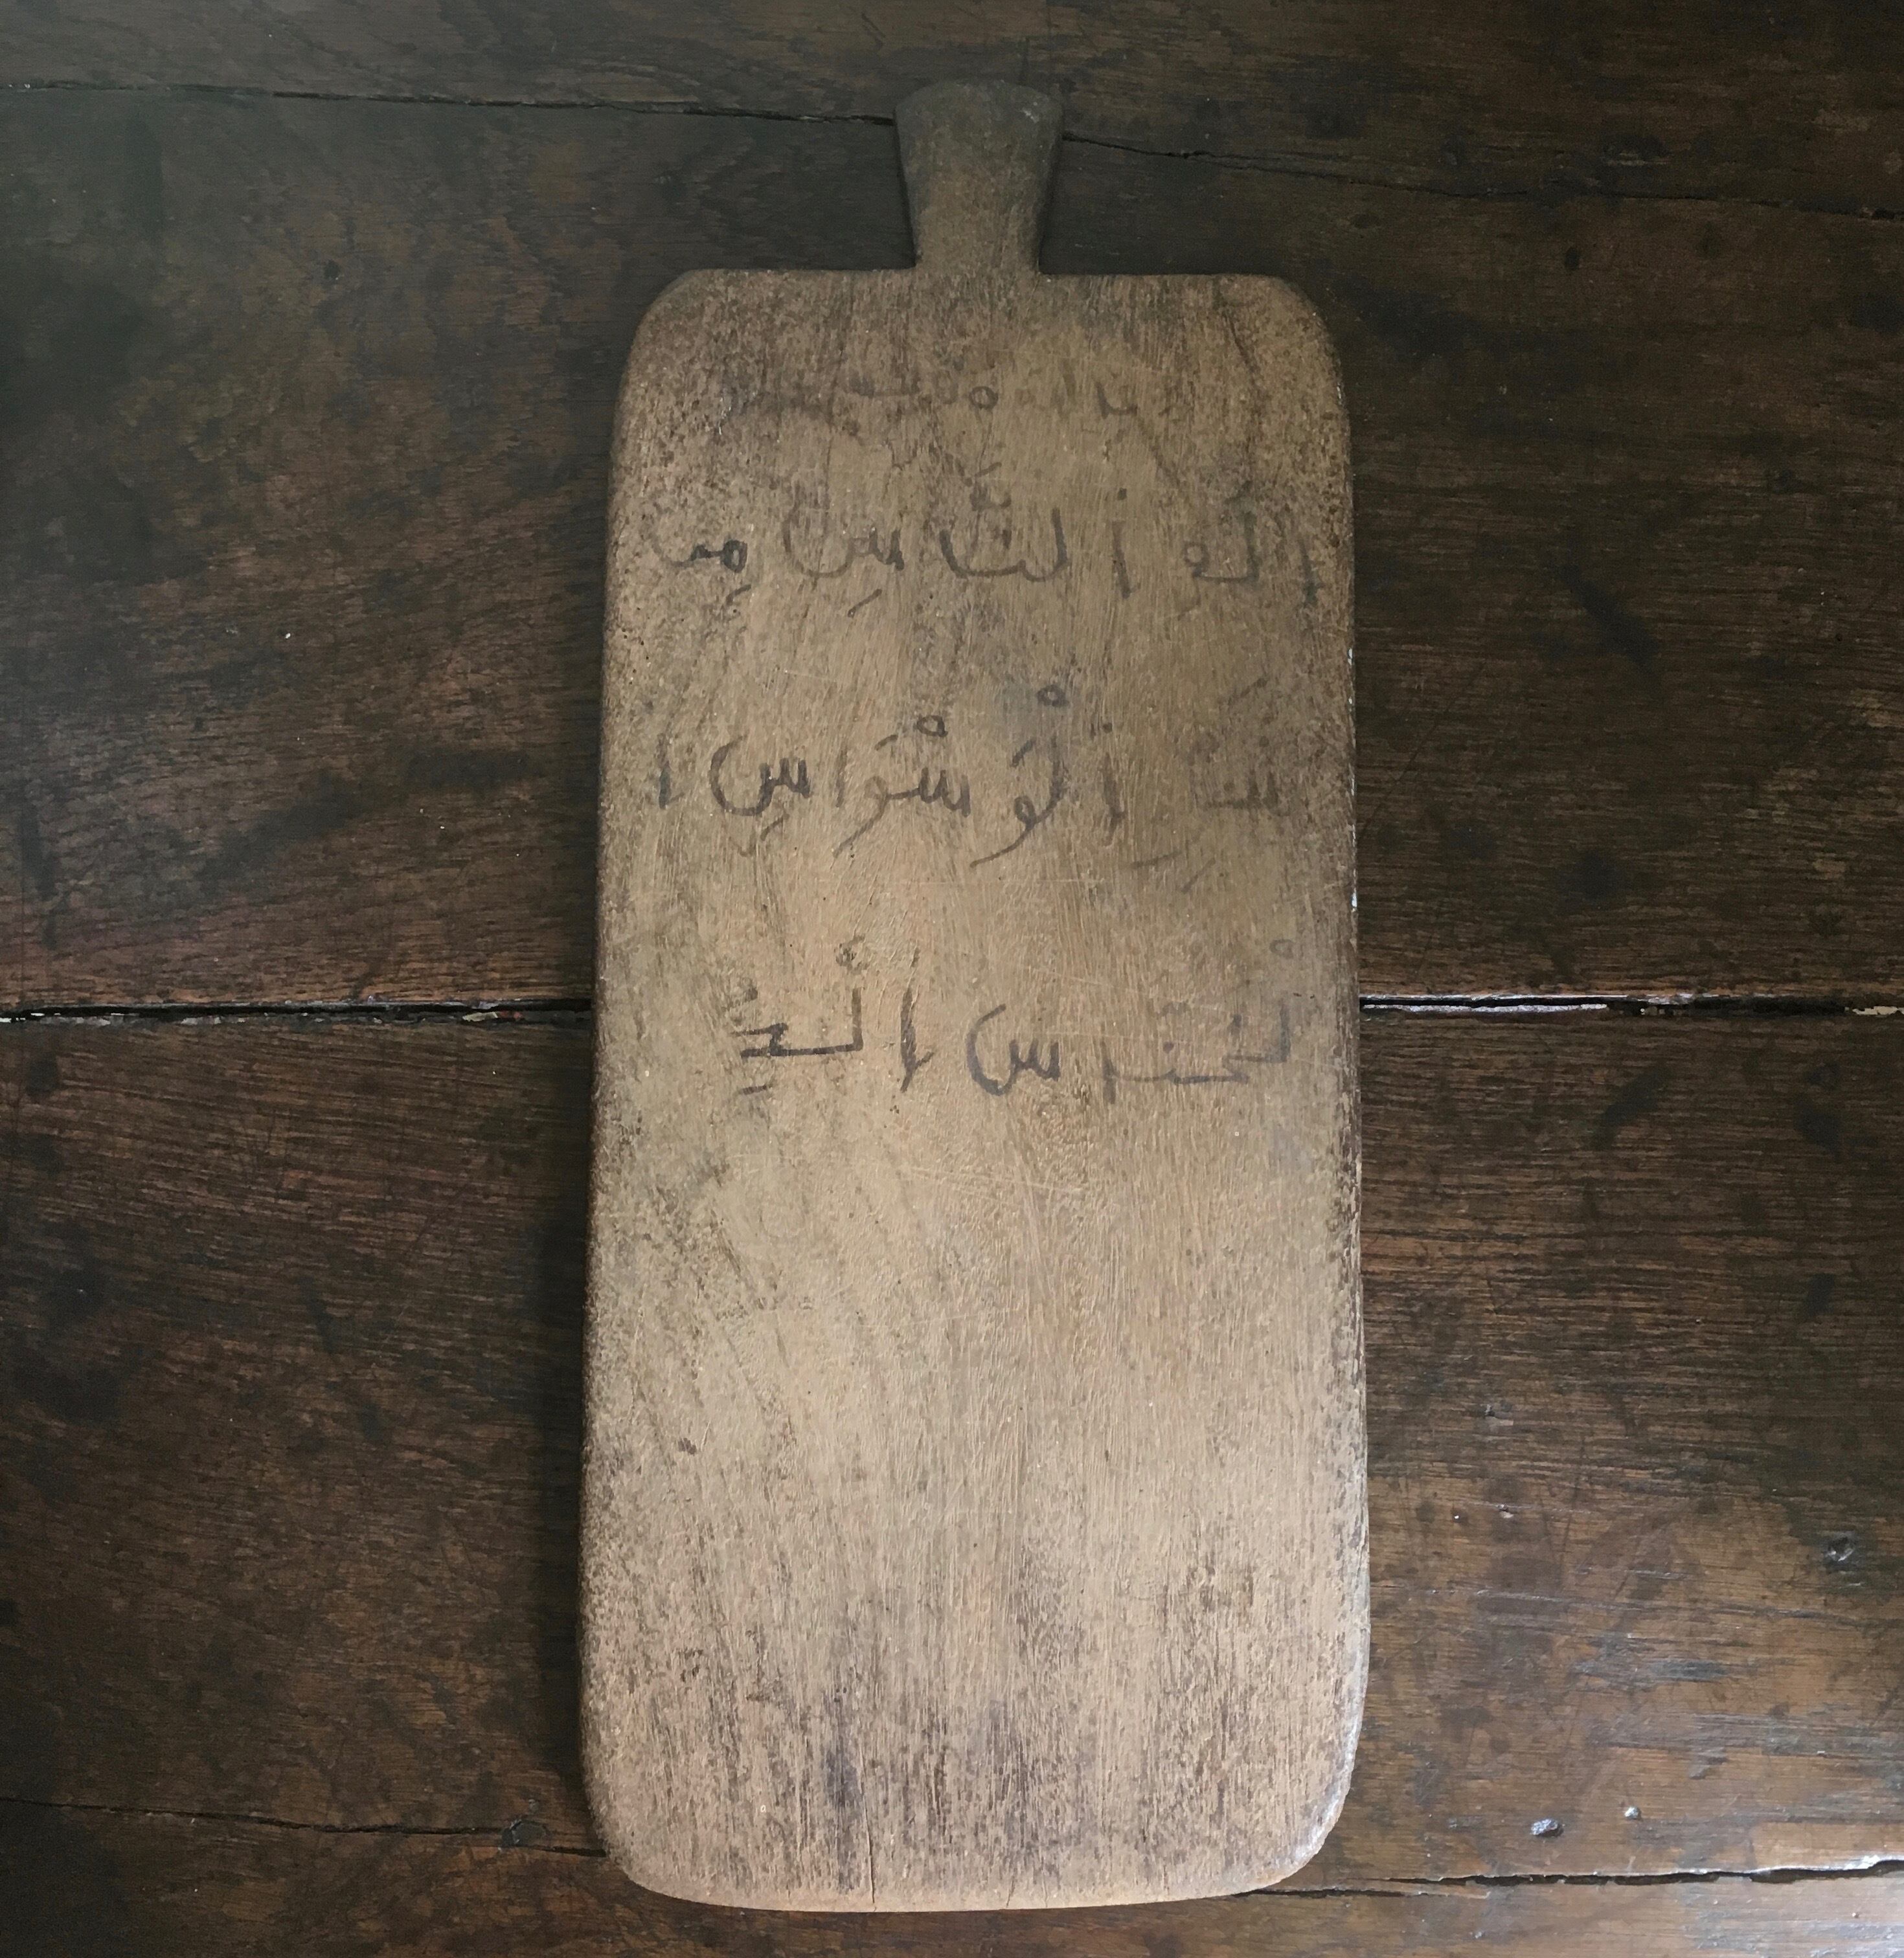 إِلَهِ ٱلنَّاسِ مِن
شَرِّ ٱلْوَسْوَاسِ ا
لْخَنَّاسِ ٱلَّذِ